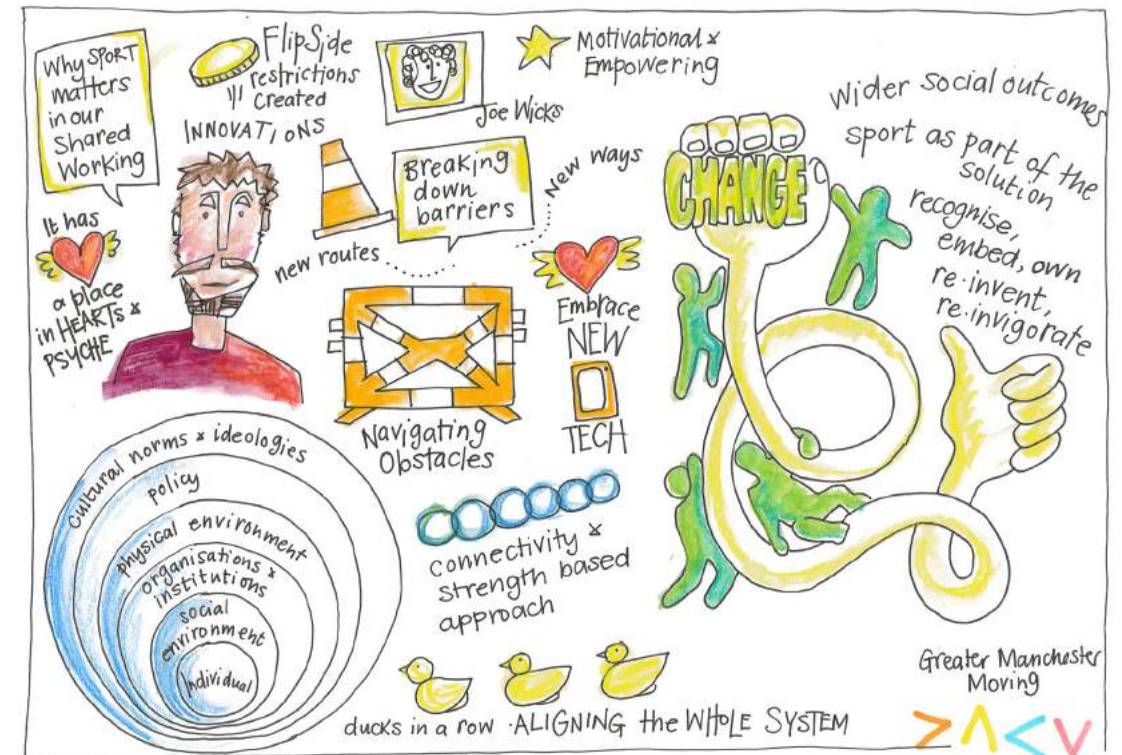 Why SPORT
matters
in our
Shared
Working
It has
a place
in HEARTS &
PSYCHE
FlipSide
restrictions
Created
INNOVATIONS
Joe Wicks
Motivational &
Empowering
Breaking
down
barriers
new routes
New ways
Navigating
Obstacles
Embrace
NEW
TECH
CHANGE
wider social outcomes
sport as part of the
solution
recognise,
embed, own
re·invent,
re·invigorate
Cultural norms & ideologies
policy
physical environment
organisations &
institutions
social
environment
Individual
connectivity &
strength based
approach
ducks in a row · ALIGNING the WHOLE SYSTEM
Greater Manchester
Moving